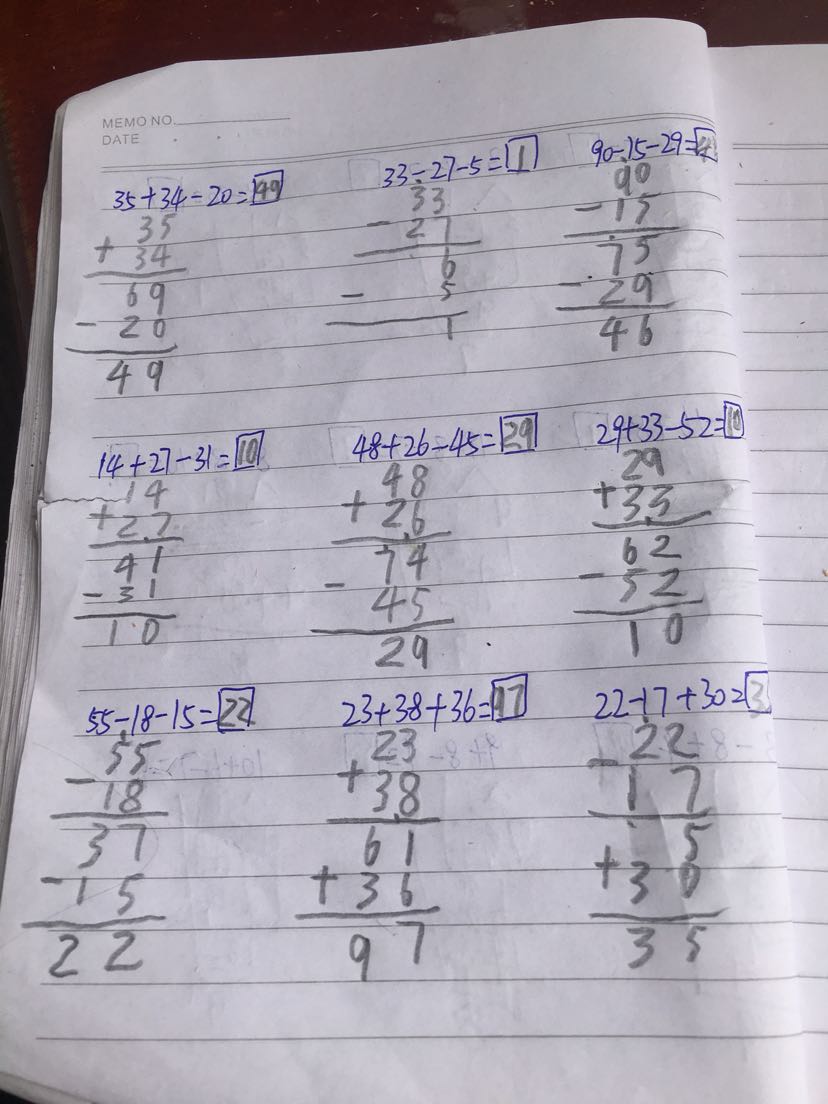 MEMO NO.
DATE
35+34-20=49
35
+ 34
69
- 20
49
33-27-5=1
33
- 27
6
- 5
1
90-15-29=4
90
- 15
75
- 29
46
14+27-31=10
14
+ 27
41
- 31
10
48+26-45=29
48
+ 26
74
- 45
29
29+33-52=10
29
+ 33
62
- 52
10
55-18-15=22
55
- 18
37
- 15
22
23+38+36=97
23
+ 38
61
+ 36
97
22-17+30=3
22
- 17
5
+ 30
35